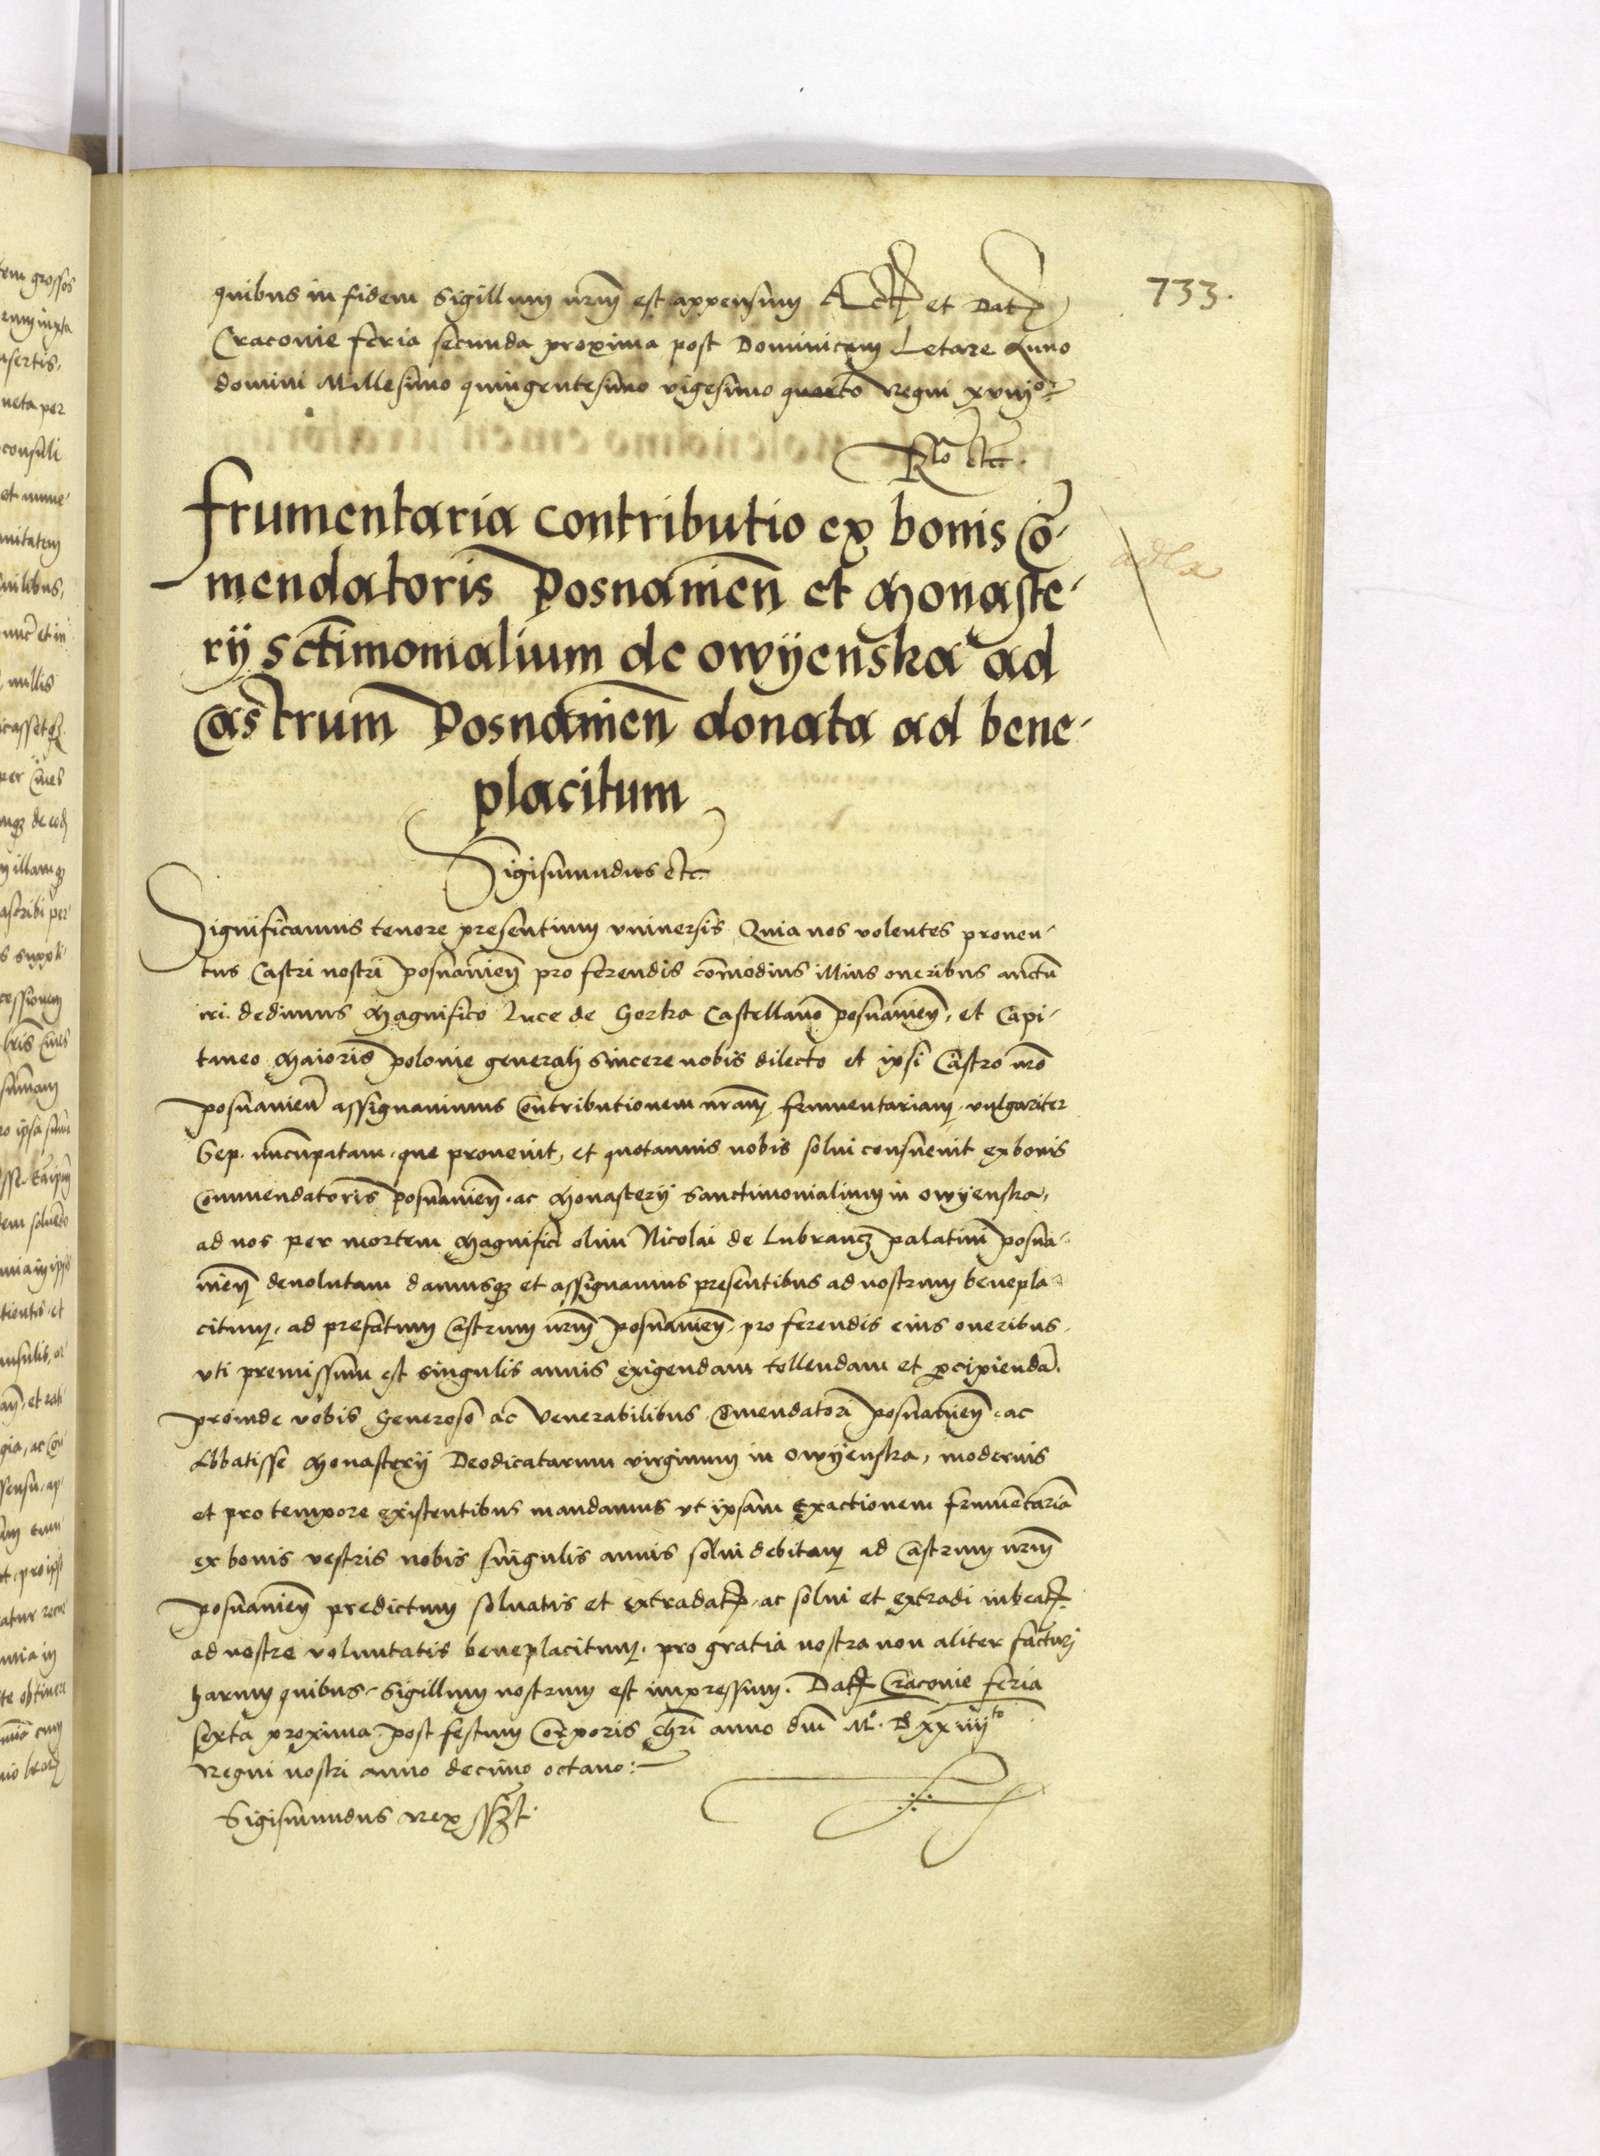 733.
quibus in fidem Sigillum nrm̄ est appensum Actȝ et Datȝ
Cracovie feria secunda proxima post Dominicam Letare Anno
domini Millesimo quingentesimo vigesimo quarto Regni xviijº
Rlō etc.
frumentaria contributio ex bonis Cō-
mendatoris Posnanien̄ et Monaste-
rij sctīmonialium de owijenska ad
Castrum Posnanien̄ donata ad bene-
placitum
Sigismundus etc.
Significamus tenore presentium vniuersis Quia nos volentes prouen-
tus Castri nostri posnanien̄ pro ferendis com̄odius illius oneribus auctū
iri. dedimus Magnifico Luce de Gorka Castellano posnanien̄, et Capi-
taneo Maioris polonie generali sincere nobis dilecto et ipsi Castro nrō
posnanien̄ assignauimus Contributionem nram̄ frumentariam vulgariter
Sep. nuncupatam. que prouenit, et quotannis nobis solui consueuit ex bonis
Commendatoris posnanien̄. ac Monasterij Sanctimonialium in owijenska,
ad nos per mortem Magnifici olim Nicolai de Lubrancȝ palatini posna-
nien̄ deuolutam damusqȝ et assignamus presentibus ad nostrum benepla-
citum, ad prefatum Castrum nrm̄ posnanien̄. pro ferendis eius oneribus.
vti premissum est singulis annis exigendam tollendam et ꝑcipiendā.
proinde vobis Generoso ac Venerabilibus Cōmendatori posnanien̄. ac
Abbatisse Monasterij Deodicatarum virginum in owijenska, modernis
et pro tempore existentibus mandamus vt ipsam exactionem frumentariā
ex bonis vestris nobis singulis annis solui debitam ad Castrum nrm̄
posnanien̄ predictum soluatis et extradatȝ. ac solui et extradi iubeatȝ
ad nostre voluntatis beneplacitum. pro gratia nostra non aliter facturj
harum quibus Sigillum nostrum est impressum. Datȝ Cracovie feria
sexta proxima post festum Corporis Chrī anno dnī Mº. Dxxiiijto
Regni nostri anno decimo octauo:-
Sigismundus Rex sszt.